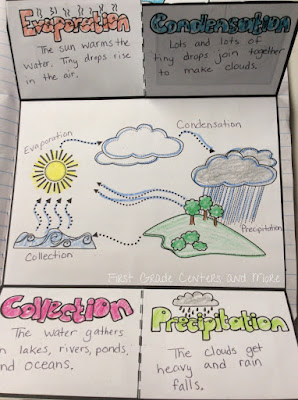 Evaporation
The sun warms the
water. Tiny drops rise
in the air.
Condensation
Lots and lots of
tiny drops join together
to make clouds.
Evaporation
Condensation
Precipitation
Collection
First Grade Centers and More
Collection
The water gathers
in lakes, rivers, ponds,
and oceans.
Precipitation
The clouds get
heavy and rain
falls.